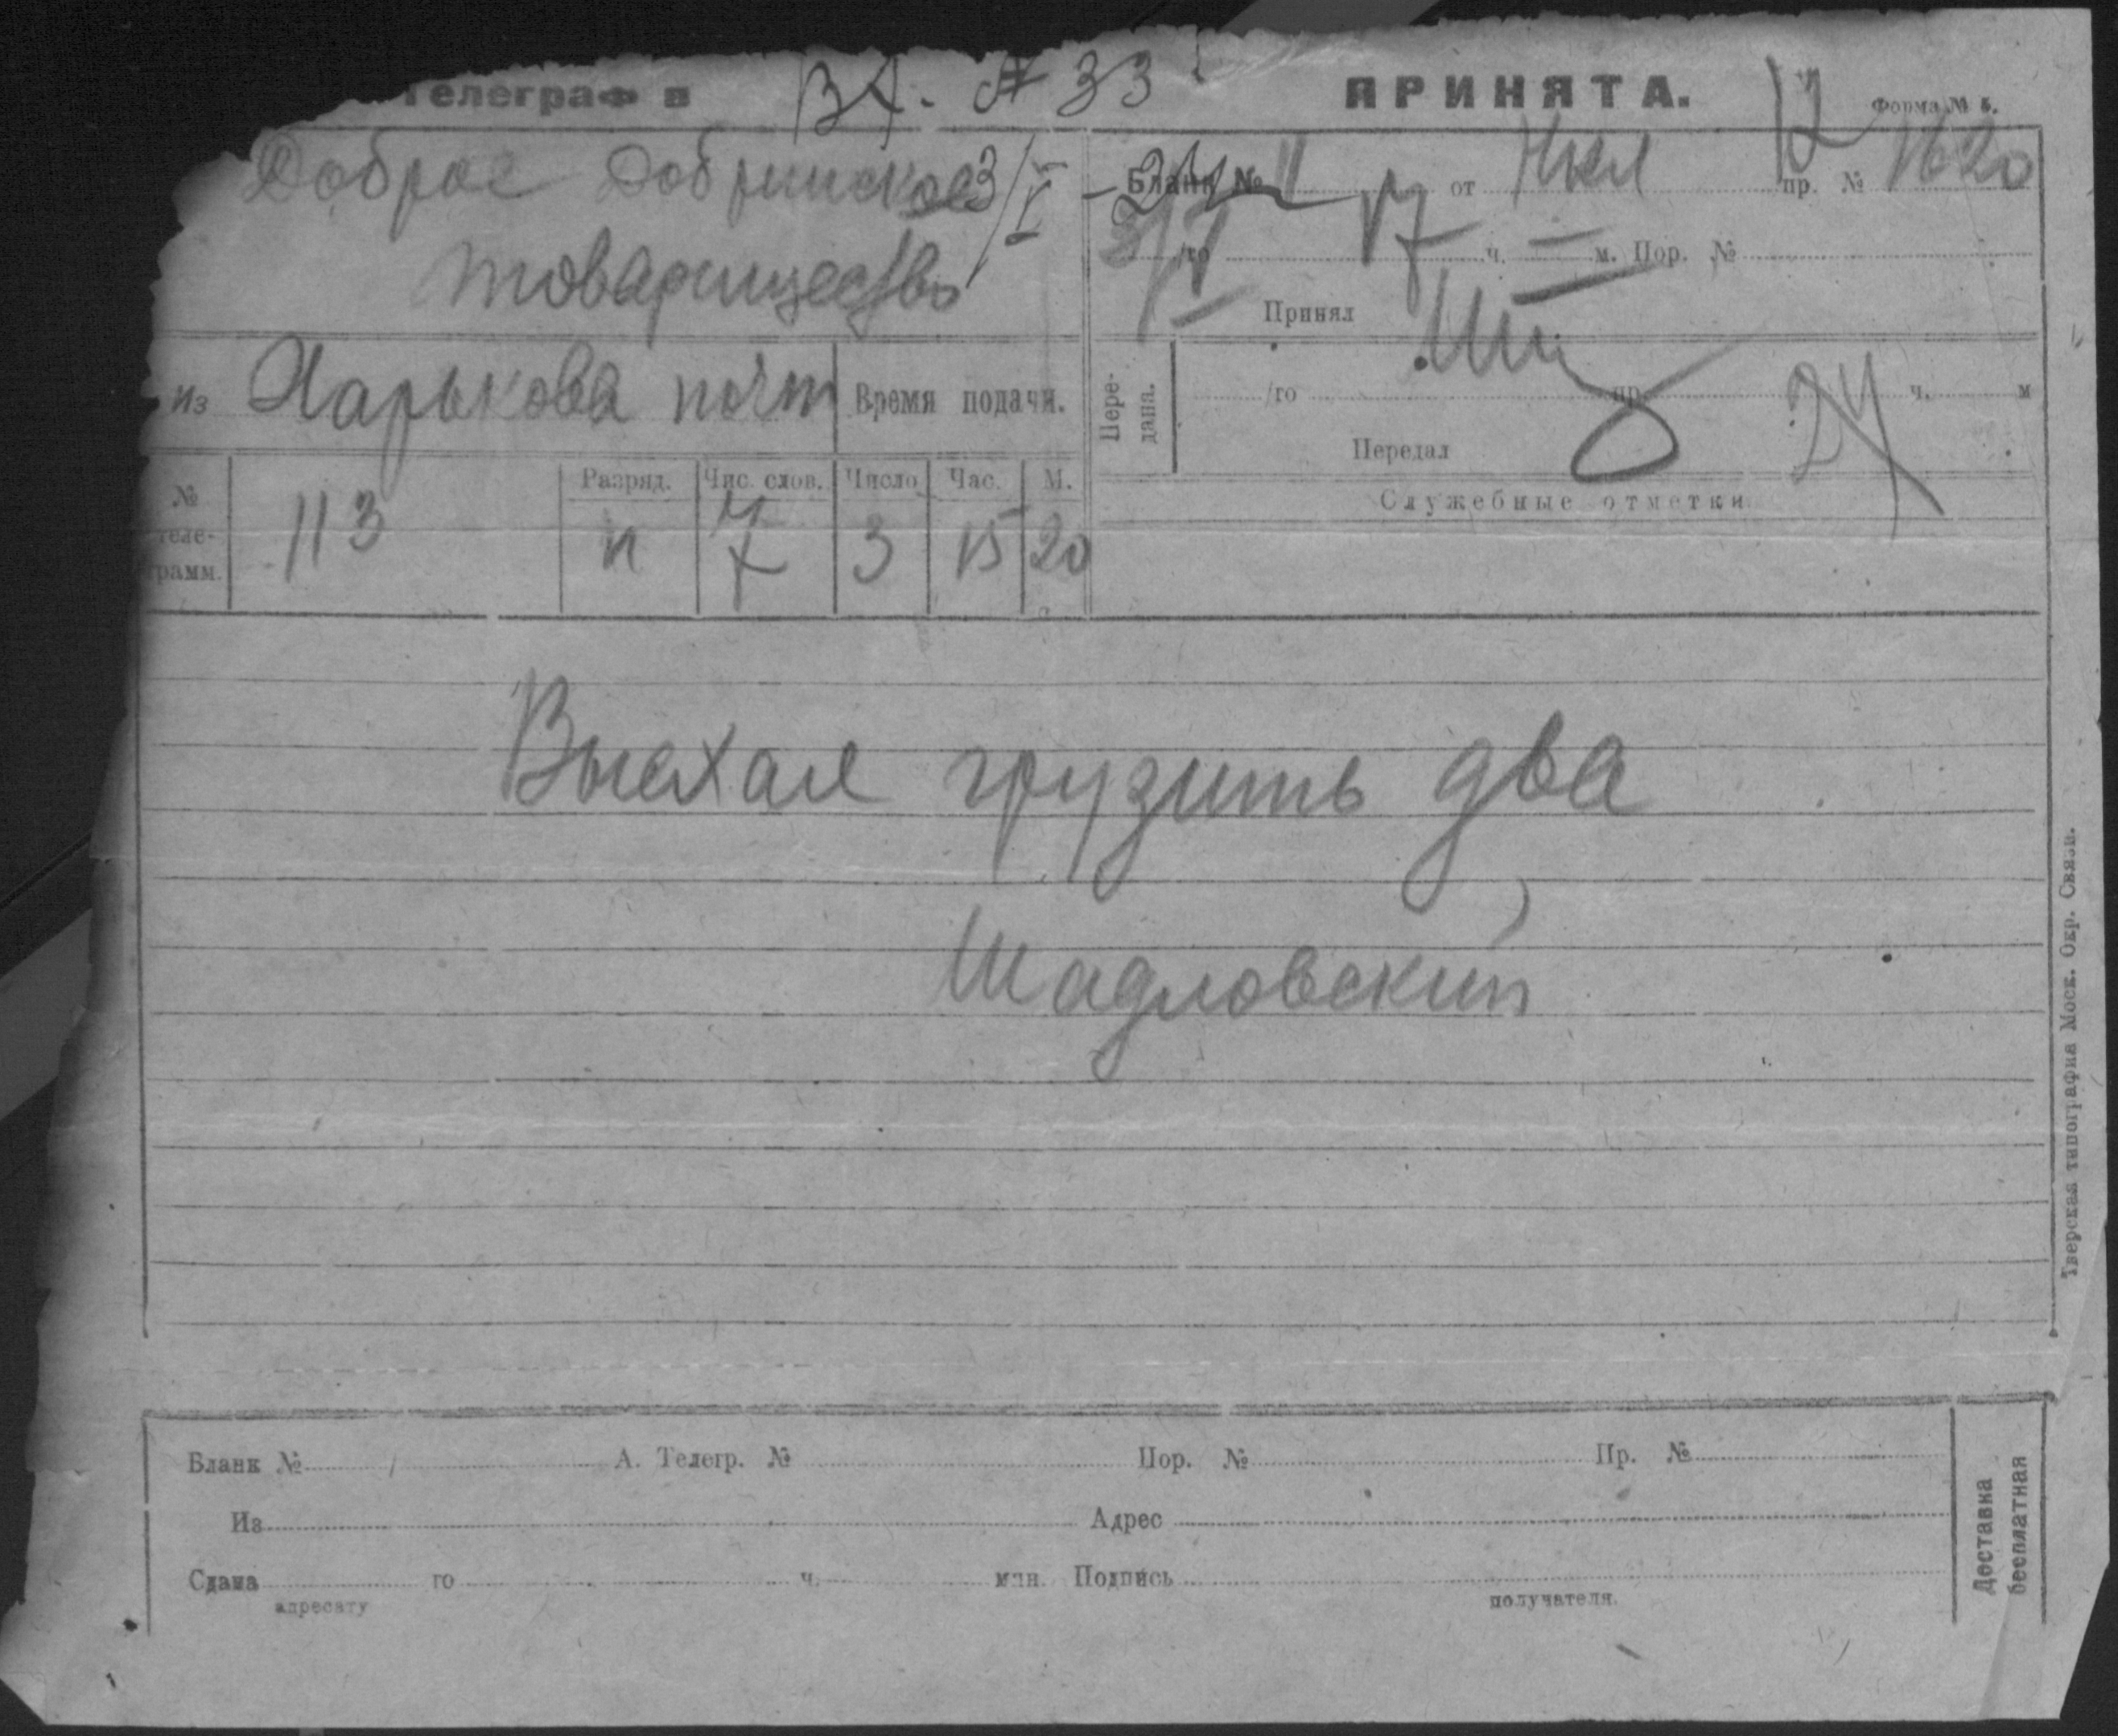 Телеграф в Вх. № 33
Доброе Добринское 3/V
товарищество
из Харькова почт Время подачи.
№ теле- грамм. 113
Разряд. Чис. слов. Число Час. М.
п 7 3 15 20
ПРИНЯТА. 12 Форма № 5.
Бланк № от пр. № 1620
3/V /го 17 ч. — м. Пор. №
Принял
Пере-
дана.
/го пр. ч. м
Передал
24
Служебные отметки
Выехал грузить два
Шадловский
Тверская типография Моск. Окр. Связи.
Бланк № А. Телегр. № Пор. № Пр. №
Из Адрес
Сдана го ч. мин. Подпись
адресату получателя.
Доставка
бесплатная